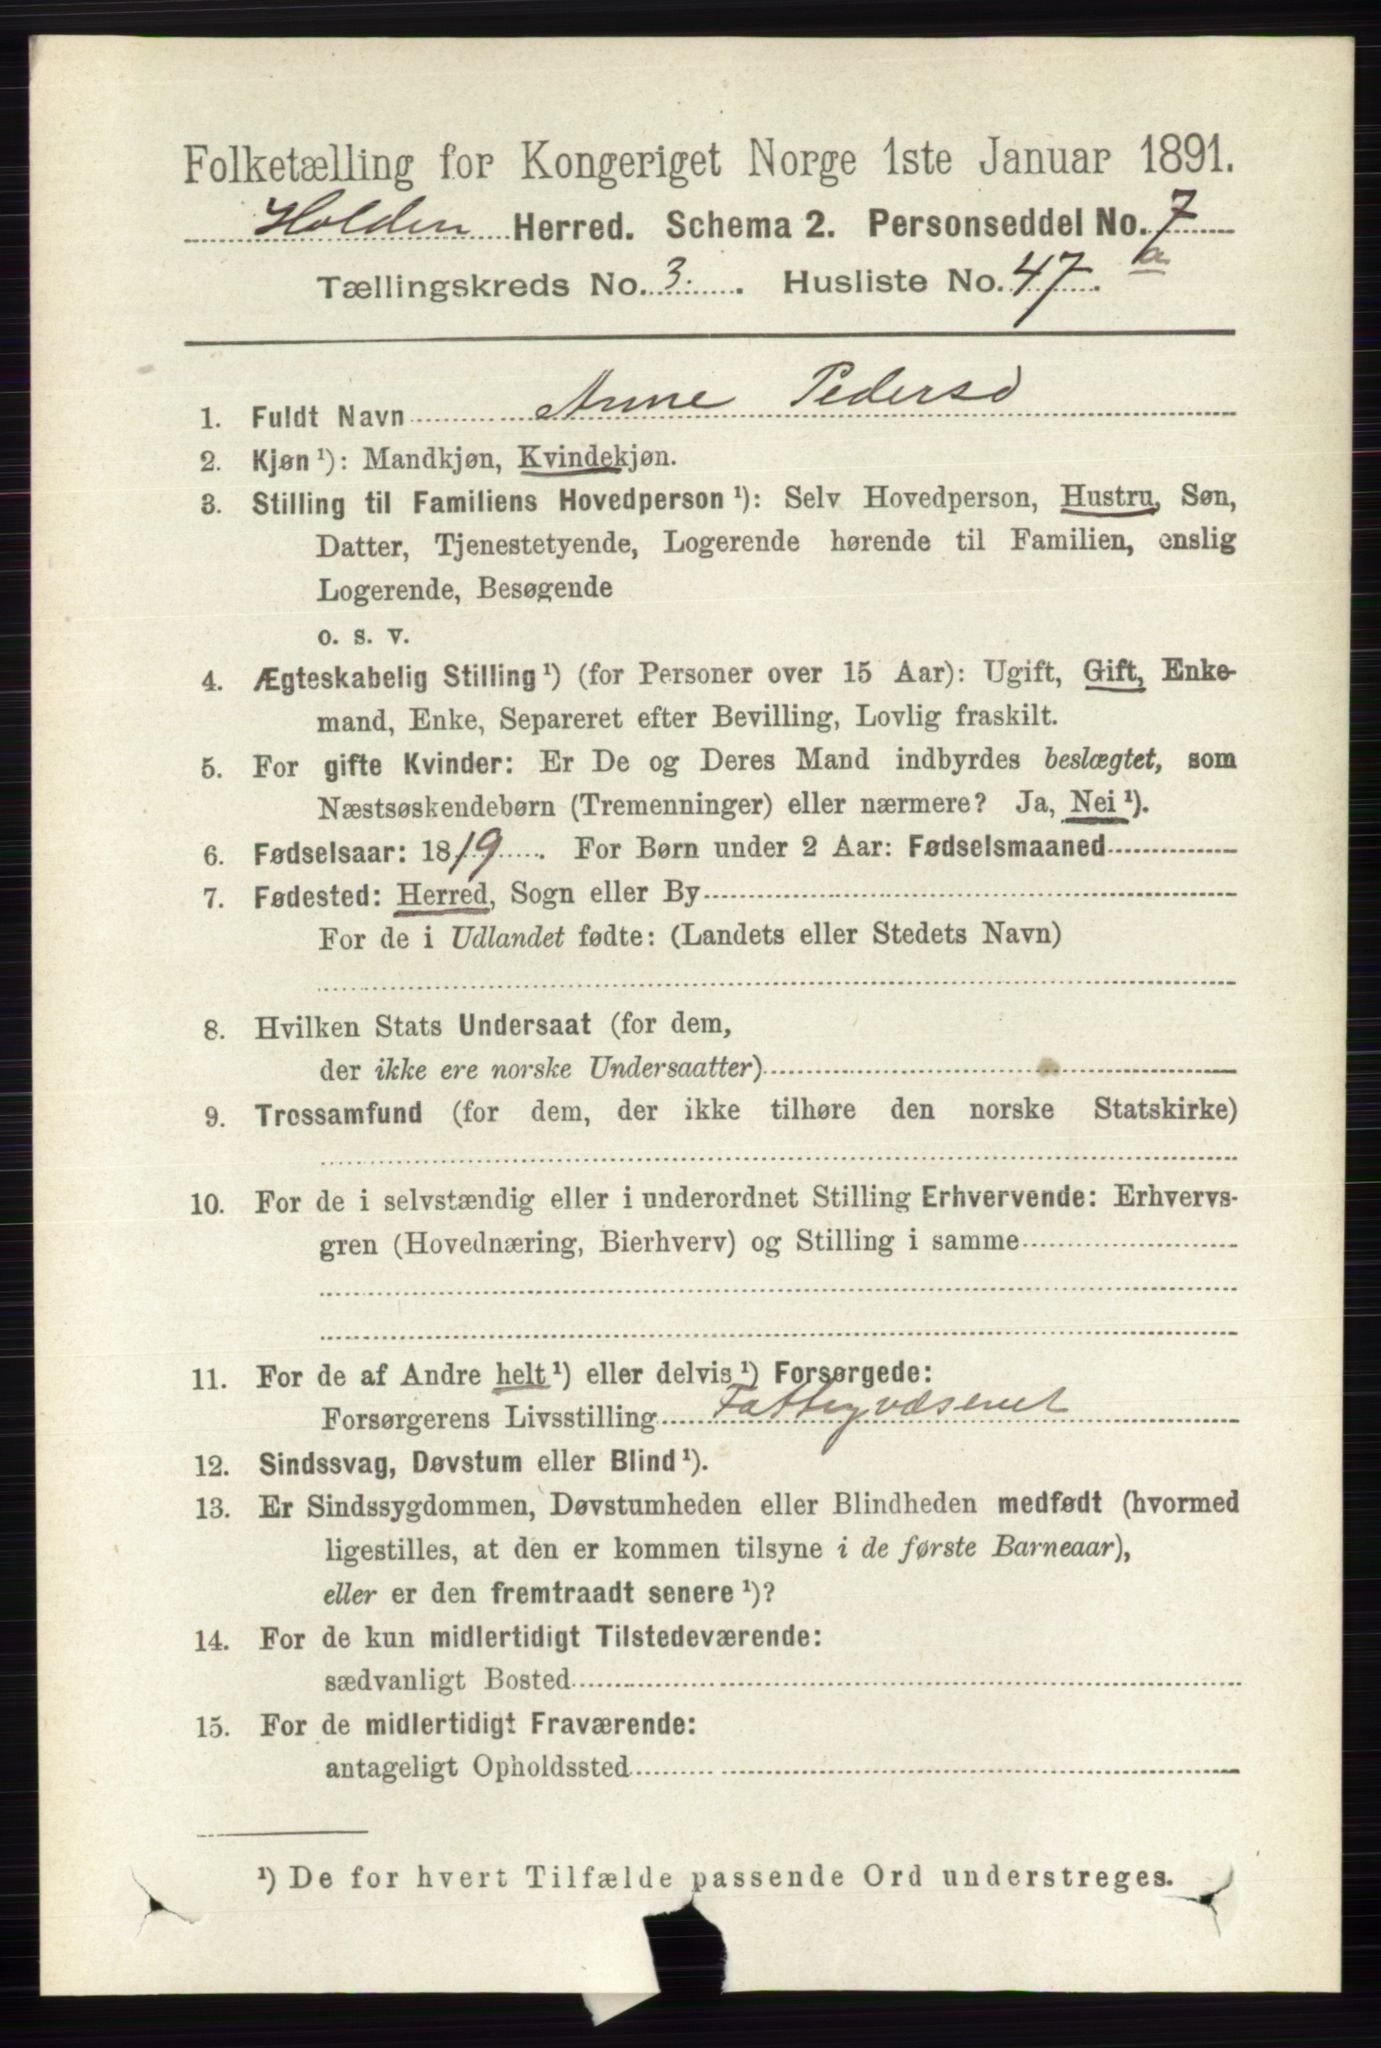 Folketælling for Kongeriget Norge 1ste Januar 1891.
Holden Herred. Schema 2. Personseddel No. 7
Tællingskreds No. 3. Husliste No. 47. a
1. Fuldt Navn Anne Pedersd
2. Kjøn ¹): Mandkjøn, Kvindekjøn.
3. Stilling til Familiens Hovedperson ¹): Selv Hovedperson, Hustru, Søn,
Datter, Tjenestetyende, Logerende hørende til Familien, enslig
Logerende, Besøgende
o. s. v.
4. Ægteskabelig Stilling ¹) (for Personer over 15 Aar): Ugift, Gift, Enke-
mand, Enke, Separeret efter Bevilling, Lovlig fraskilt.
5. For gifte Kvinder: Er De og Deres Mand indbyrdes beslægtet, som
Næstsøskendebørn (Tremenninger) eller nærmere? Ja, Nei ¹).
6. Fødselsaar: 1819. For Børn under 2 Aar: Fødselsmaaned
7. Fødested: Herred, Sogn eller By
For de i Udlandet fødte: (Landets eller Stedets Navn)
8. Hvilken Stats Undersaat (for dem,
der ikke ere norske Undersaatter)
9. Trossamfund (for dem, der ikke tilhøre den norske Statskirke)
10. For de i selvstændig eller i underordnet Stilling Erhvervende: Erhvervs-
gren (Hovednæring, Bierhverv) og Stilling i samme
11. For de af Andre helt ¹) eller delvis ¹) Forsørgede:
Forsørgerens Livsstilling Fattigvæsenet
12. Sindssvag, Døvstum eller Blind ¹).
13. Er Sindssygdommen, Døvstumheden eller Blindheden medfødt (hvormed
ligestilles, at den er kommen tilsyne i de første Barneaar),
eller er den fremtraadt senere ¹)?
14. For de kun midlertidigt Tilstedeværende:
sædvanligt Bosted
15. For de midlertidigt Fraværende:
antageligt Opholdssted
¹) De for hvert Tilfælde passende Ord understreges.